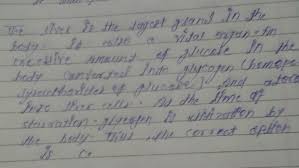 The liver is the largest gland in the
body. Is also a vital organ. In
excessive amount of glucose in the
body converted into glycogen (
of glucose) and store
into liver cells. At the time of
starvation glycogen is utilization by
the body. Thus, the correct option
is C